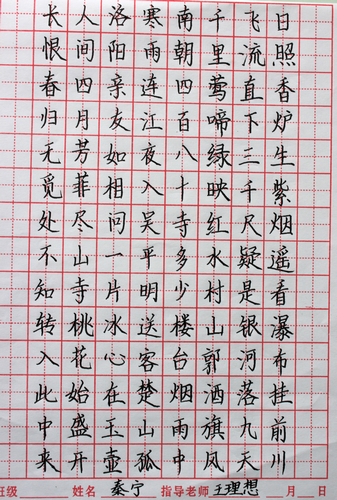 日照香炉生紫烟遥看瀑布挂前川
飞流直下三千尺疑是银河落九天
千里莺啼绿映红水村山郭酒旗风
南朝四百八十寺多少楼台烟雨中
寒雨连江夜入吴平明送客楚山孤
洛阳亲友如相问一片冰心在玉壶
人间四月芳菲尽山寺桃花始盛开
长恨春归无觅处不知转入此中来
班级 姓名 秦宁 指导老师 王理想 月 日